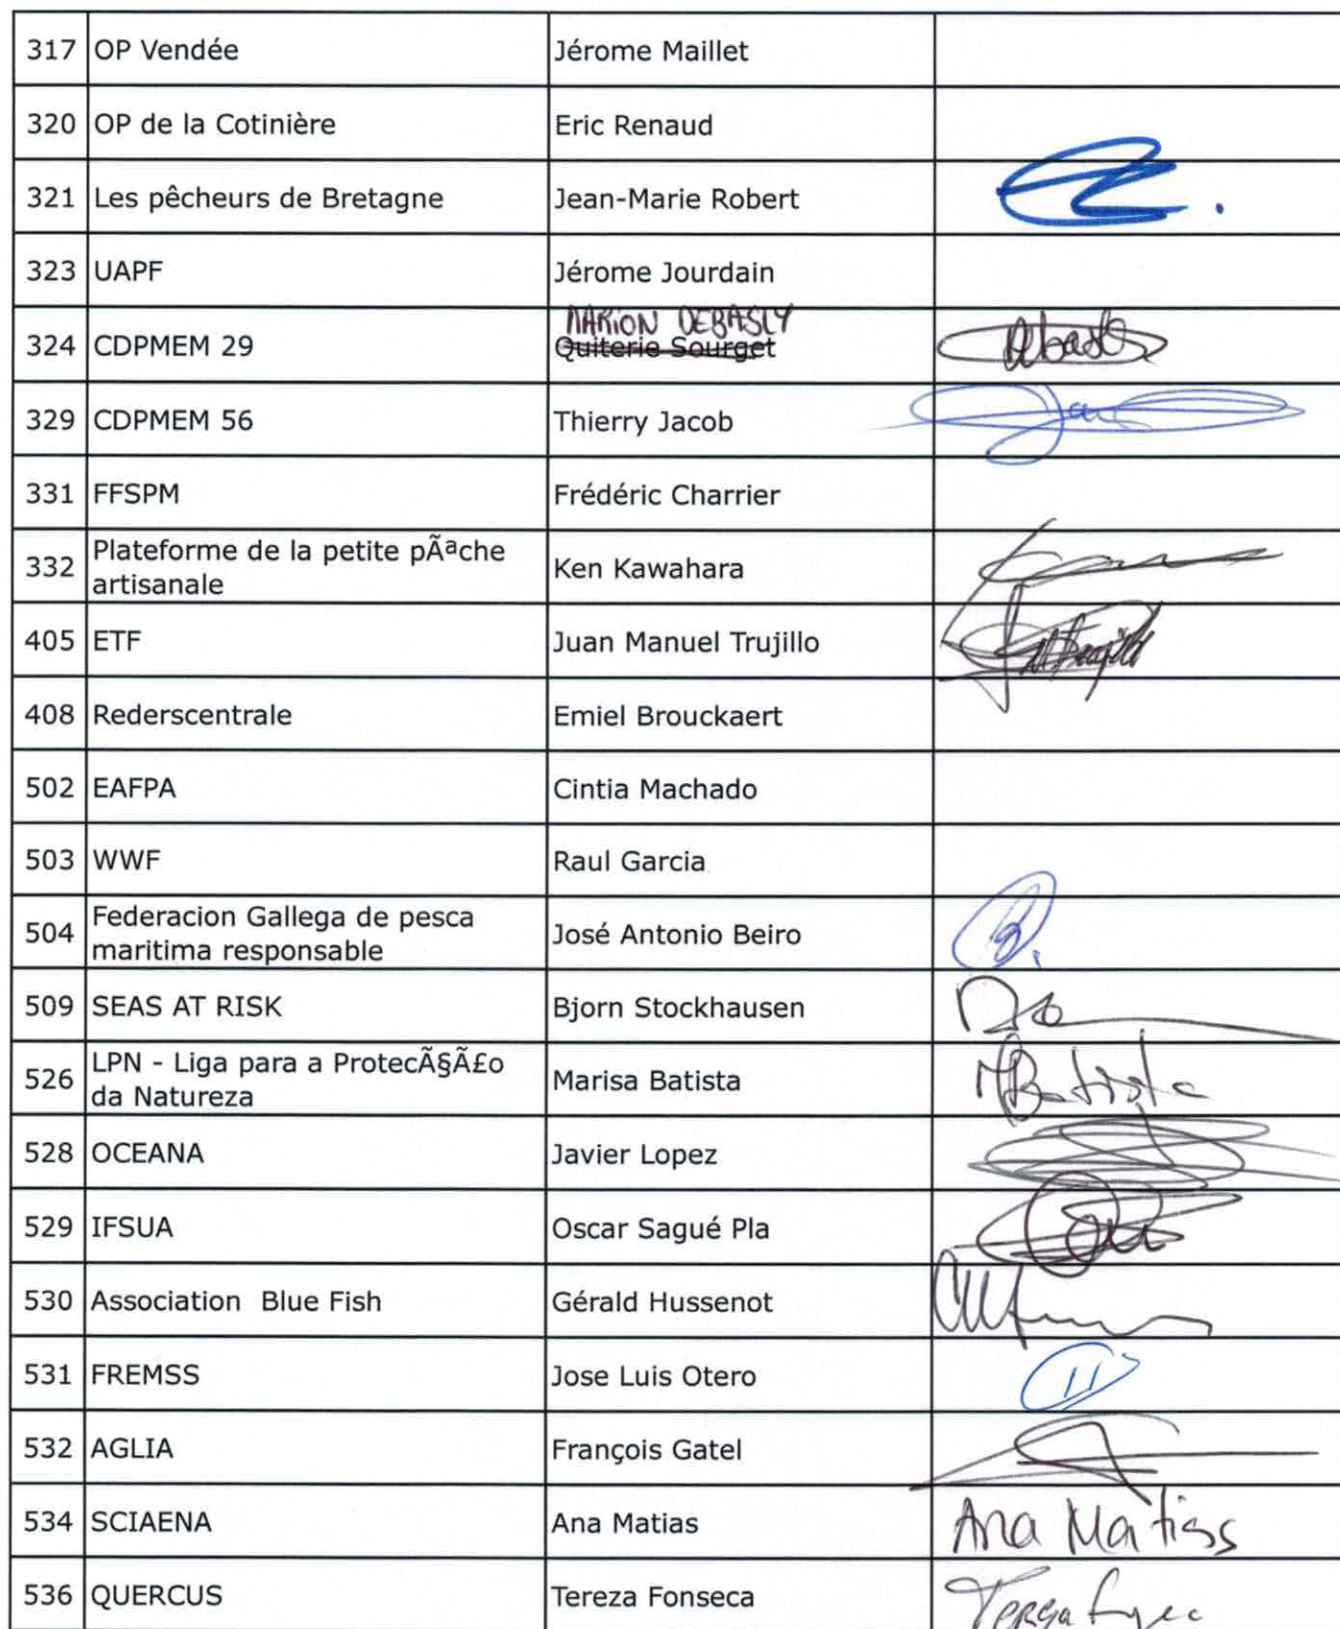 317 OP Vendée Jérome Maillet
320 OP de la Cotinière Eric Renaud
321 Les pêcheurs de Bretagne Jean-Marie Robert
323 UAPF Jérome Jourdain
MARION DEBASLY
324 CDPMEM 29 Quiterie Sourget
329 CDPMEM 56 Thierry Jacob
331 FFSPM Frédéric Charrier
Plateforme de la petite pÃªche
332 Ken Kawahara
artisanale
405 ETF Juan Manuel Trujillo
408 Rederscentrale Emiel Brouckaert
502 EAFPA Cintia Machado
503 WWF Raul Garcia
Federacion Gallega de pesca
504 José Antonio Beiro
maritima responsable
509 SEAS AT RISK Bjorn Stockhausen
LPN - Liga para a ProtecÃ§Ã£o
526 Marisa Batista MBatista
da Natureza
528 OCEANA Javier Lopez
529 IFSUA Oscar Sagué Pla
530 Association Blue Fish Gérald Hussenot
531 FREMSS Jose Luis Otero
532 AGLIA François Gatel
534 SCIAENA Ana Matias Ana Matias
536 QUERCUS Tereza Fonseca